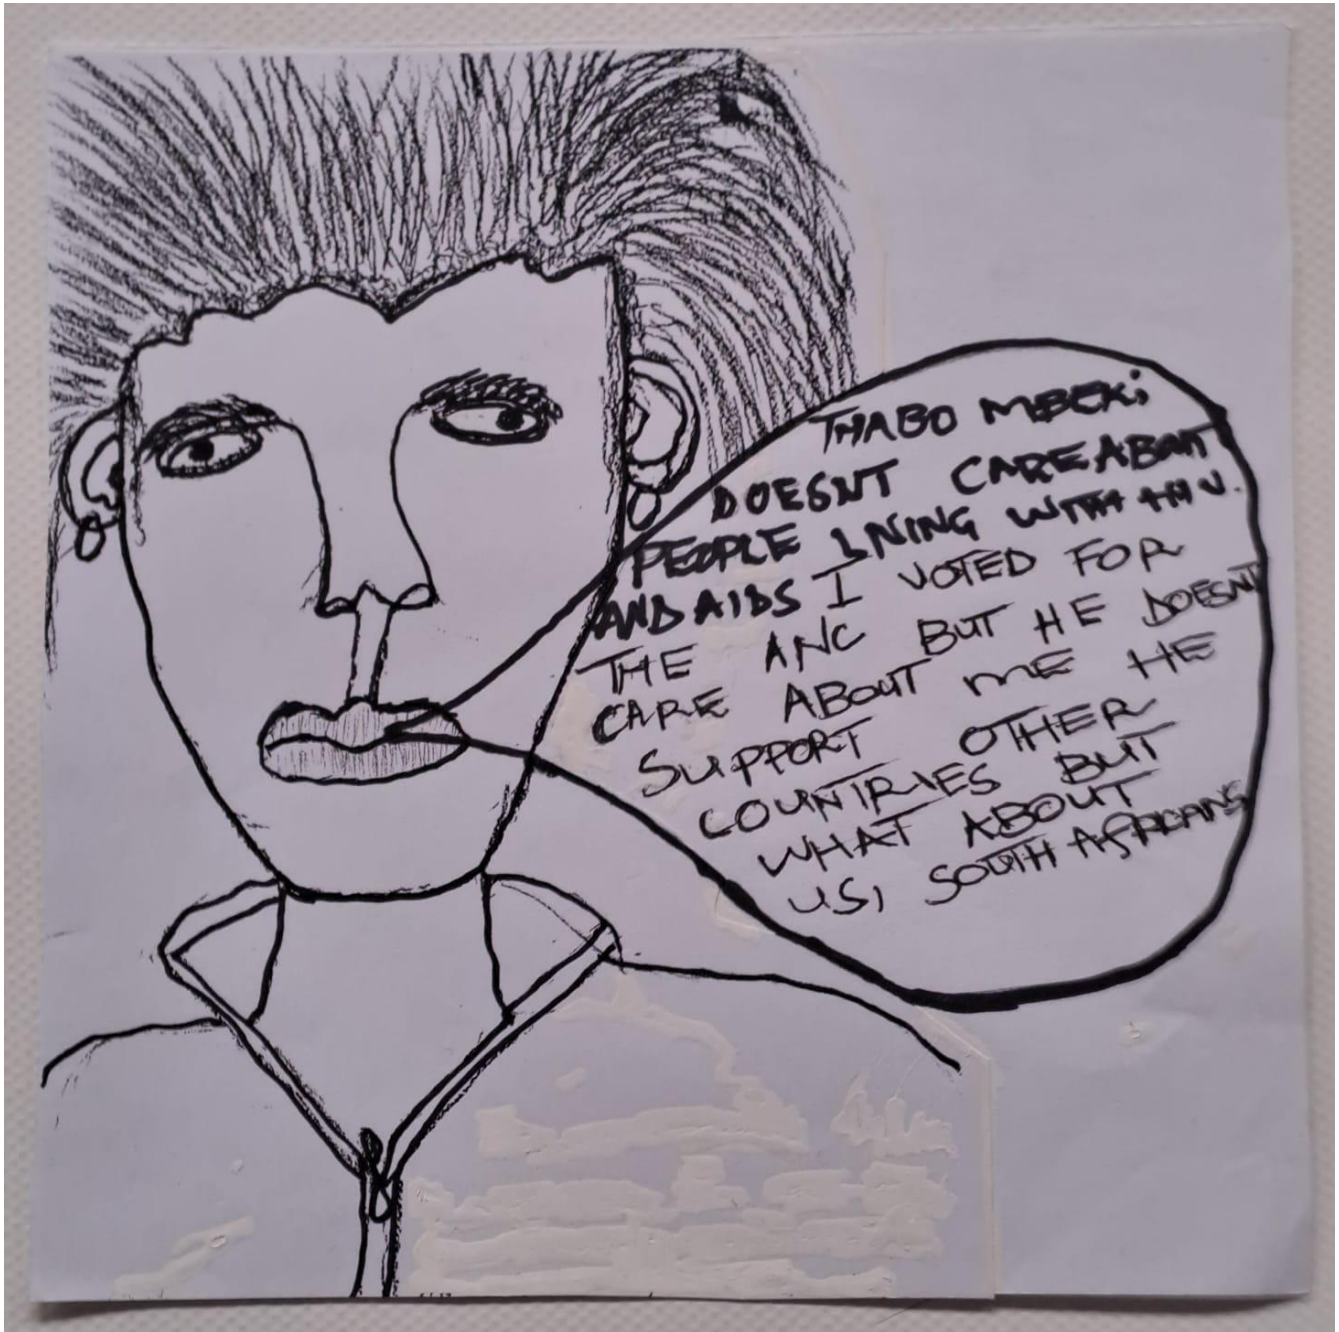 THABO MBEKI
DOESNT CARE ABOUT
PEOPLE LIVING WITH HIV.
AND AIDS I VOTED FOR
THE ANC BUT HE DOESNT
CARE ABOUT ME HE
SUPPORT OTHER
COUNTRIES BUT
WHAT ABOUT
US, SOUTH AFRICANS